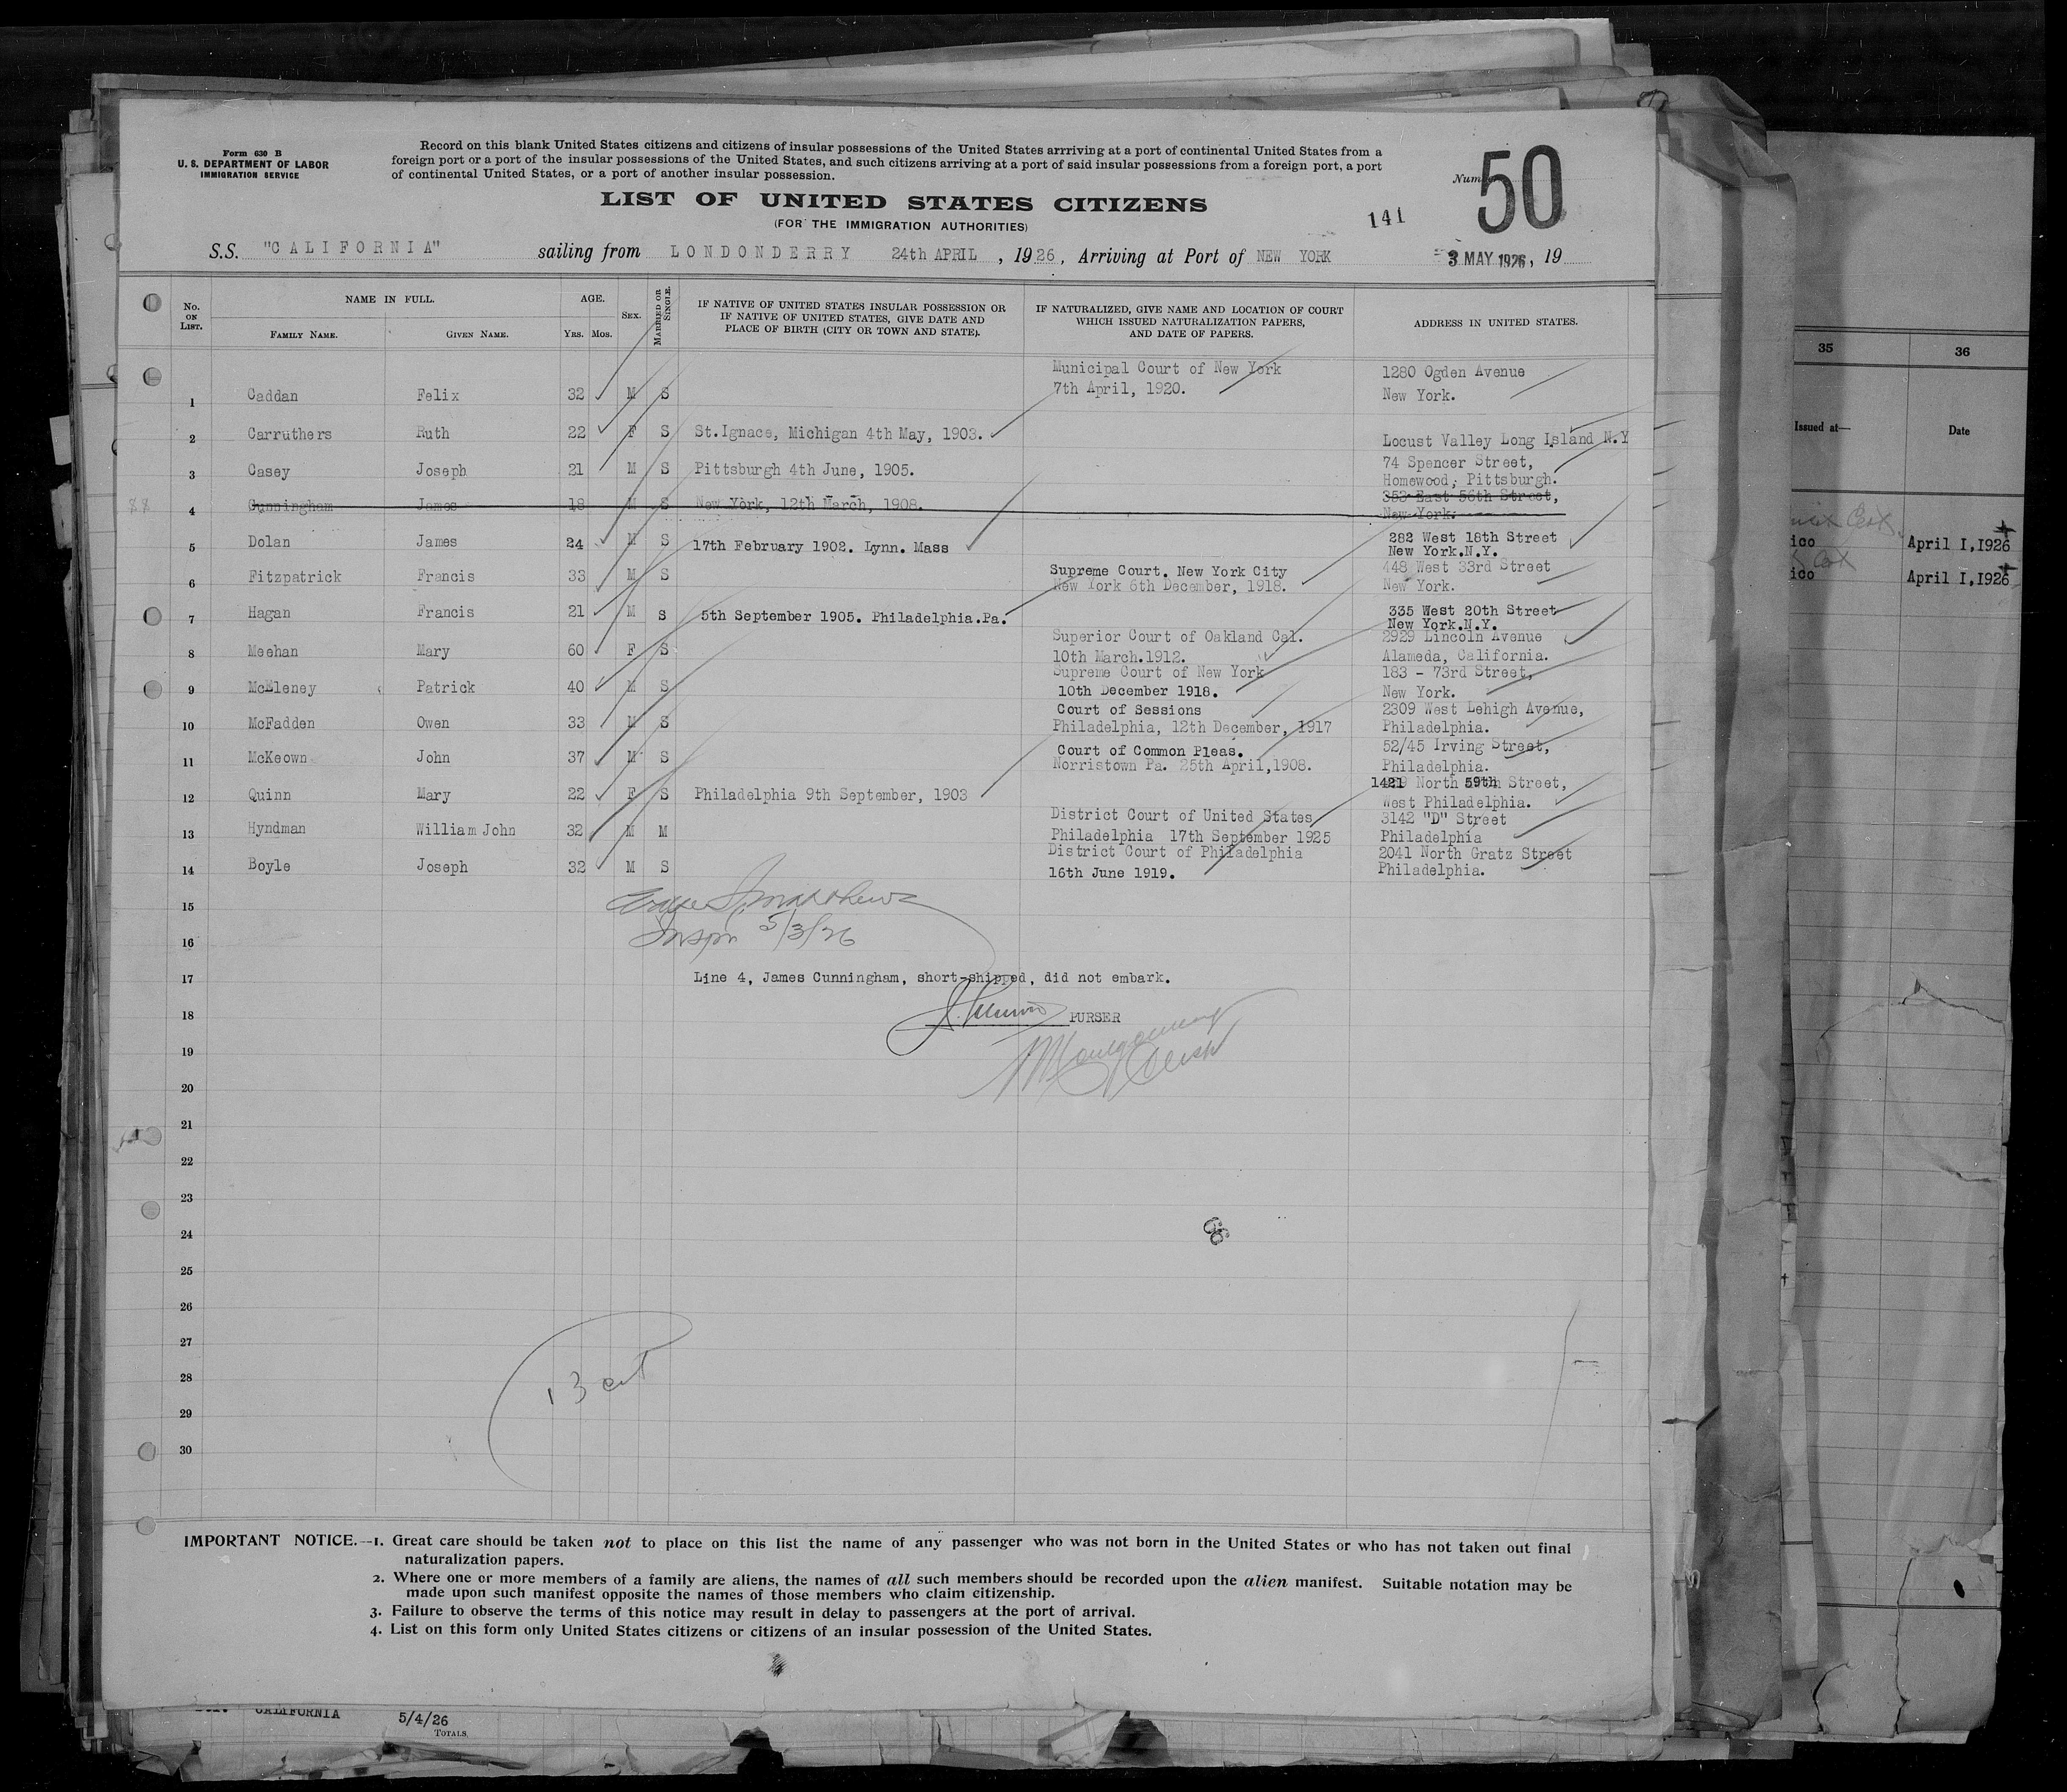 Form 630 B
U. S. DEPARTMENT OF LABOR
IMMIGRATION SERVICE
Record on this blank United States citizens and citizens of insular possessions of the United States arrriving at a port of continental United States from a
foreign port or a port of the insular possessions of the United States, and such citizens arriving at a port of said insular possessions from a foreign port, a port
of continental United States, or a port of another insular possession.
50
LIST OF UNITED STATES CITIZENS
(FOR THE IMMIGRATION AUTHORITIES)
141
S.S. "CALIFORNIA" sailing from LONDONDERRY 24th APRIL , 1926, Arriving at Port of NEW YORK 3 MAY 1926, 19
No. ON LIST.
NAME IN FULL.
FAMILY NAME. GIVEN NAME.
AGE.
Yrs. Mos.
SEX.
MARRIED OR SINGLE.
IF NATIVE OF UNITED STATES INSULAR POSSESSION OR
IF NATIVE OF UNITED STATES, GIVE DATE AND
PLACE OF BIRTH (CITY OR TOWN AND STATE).
IF NATURALIZED, GIVE NAME AND LOCATION OF COURT
WHICH ISSUED NATURALIZATION PAPERS,
AND DATE OF PAPERS.
ADDRESS IN UNITED STATES.
Municipal Court of New York 1280 Ogden Avenue
1 Caddan Felix 32 M S 7th April, 1920. New York.
2 Carruthers Ruth 22 F S St.Ignace, Michigan 4th May, 1903. Locust Valley Long Island N.Y
3 Casey Joseph 21 M S Pittsburgh 4th June, 1905. 74 Spencer Street,
Homewood, Pittsburgh.
4 Cunningham James 18 M S New York, 12th March, 1908. 353 East 56th Street,
New York.
5 Dolan James 24 M S 17th February 1902. Lynn. Mass 282 West 18th Street
New York.N.Y.
6 Fitzpatrick Francis 33 M S Supreme Court. New York City 448 West 33rd Street
New York 6th December, 1918. New York.
7 Hagan Francis 21 M S 5th September 1905. Philadelphia.Pa. 335 West 20th Street
New York.N.Y.
8 Meehan Mary 60 F S Superior Court of Oakland Cal. 2929 Lincoln Avenue
10th March.1912. Alameda, California.
9 McEleney Patrick 40 M S Supreme Court of New York 183 - 73rd Street,
10th December 1918. New York.
10 McFadden Owen 33 M S Court of Sessions 2309 West Lehigh Avenue,
Philadelphia, 12th December, 1917 Philadelphia.
11 McKeown John 37 M S Court of Common Pleas. 52/45 Irving Street,
Norristown Pa. 25th April,1908. Philadelphia.
12 Quinn Mary 22 F S Philadelphia 9th September, 1903 1421 North 59th Street,
West Philadelphia.
13 Hyndman William John 32 M M District Court of United States 3142 "D" Street
Philadelphia 17th September 1925 Philadelphia
14 Boyle Joseph 32 M S District Court of Philadelphia 2041 North Gratz Street
16th June 1919. Philadelphia.
15
16 5/3/26
17 Line 4, James Cunningham, short-shipped, did not embark.
18 PURSER
19
20
21
22
23
24
25
26
27
28
29
30
IMPORTANT NOTICE.—1. Great care should be taken not to place on this list the name of any passenger who was not born in the United States or who has not taken out final
naturalization papers.
2. Where one or more members of a family are aliens, the names of all such members should be recorded upon the alien manifest. Suitable notation may be
made upon such manifest opposite the names of those members who claim citizenship.
3. Failure to observe the terms of this notice may result in delay to passengers at the port of arrival.
4. List on this form only United States citizens or citizens of an insular possession of the United States.
CALIFORNIA 5/4/26
TOTALS
35 36
Issued at— Date
ico April I,1926
ico April I,1926